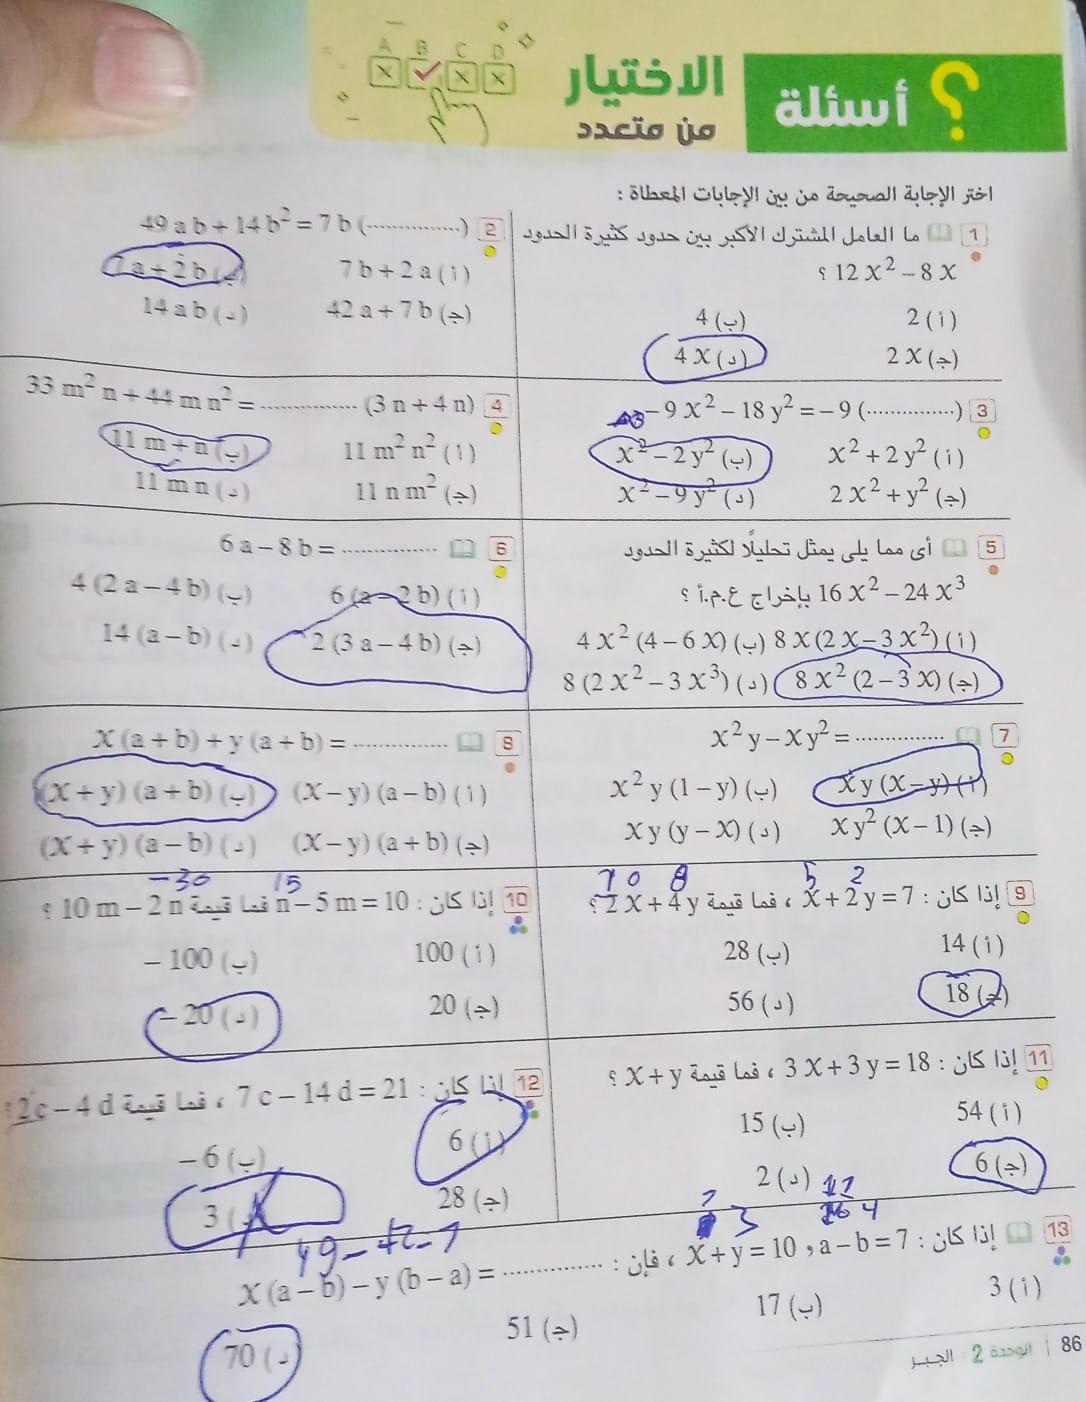 A B C D
أسئلة
الاختيار
من متعدد
اختر الإجابة الصحيحة من بين الإجابات المعطاة :
1 ما العامل المشترك الأكبر بين حدود كثيرة الحدود
12 x² – 8 x ؟
(أ) 2 (ب) 4
(ج) 2 x (د) 4 x
2 49 a b + 14 b² = 7 b (...............)
(أ) 7 b + 2 a (ب) 7 a + 2 b
(ج) 42 a + 7 b (د) 14 a b
3 – 9 x² – 18 y² = – 9 (...............)
(أ) x² + 2 y² (ب) x² – 2 y²
(ج) 2 x² + y² (د) x² – 9 y²
4 33 m² n + 44 m n² = ............... (3 n + 4 n)
(أ) 11 m² n² (ب) 11 m + n
(ج) 11 n m² (د) 11 m n
5 أى مما يلى يمثل تحليلًا لكثيرة الحدود
16 x² – 24 x³ بإخراج ع.م.أ ؟
(أ) 8 x (2 x – 3 x²) (ب) 4 x² (4 – 6 x)
(ج) 8 x² (2 – 3 x) (د) 8 (2 x² – 3 x³)
6 6 a – 8 b = ...............
(أ) 6 (a – 2 b) (ب) 4 (2 a – 4 b)
(ج) 2 (3 a – 4 b) (د) 14 (a – b)
7 x² y – x y² = ...............
(أ) x y (x – y) (ب) x² y (1 – y)
(ج) x y² (x – 1) (د) x y (y – x)
8 x (a + b) + y (a + b) = ...............
(أ) (x – y) (a – b) (ب) (x + y) (a + b)
(ج) (x – y) (a + b) (د) (x + y) (a – b)
10 8 5 2
9 إذا كان : x + 2 y = 7 ، فما قيمة 2 x + 4 y ؟
(أ) 14 (ب) 28
(ج) 18 (د) 56
–30 15
10 إذا كان : n – 5 m = 10 فما قيمة 10 m – 2 n ؟
(أ) 100 (ب) – 100
(ج) 20 (د) – 20
11 إذا كان : 3 x + 3 y = 18 ، فما قيمة x + y ؟
(أ) 54 (ب) 15
(ج) 6 (د) 2
12 إذا كان : 7 c – 14 d = 21 ، فما قيمة 2 c – 4 d ؟
(أ) 6 (ب) – 6
(ج) 28 3
7 3 4
13 إذا كان : x + y = 10 ، a – b = 7 ، فإن :
49 –
x (a – b) – y (b – a) = ...............
(أ) 3 (ب) 17
(ج) 51 (د) 70
86 | الوحدة 2 الجبر